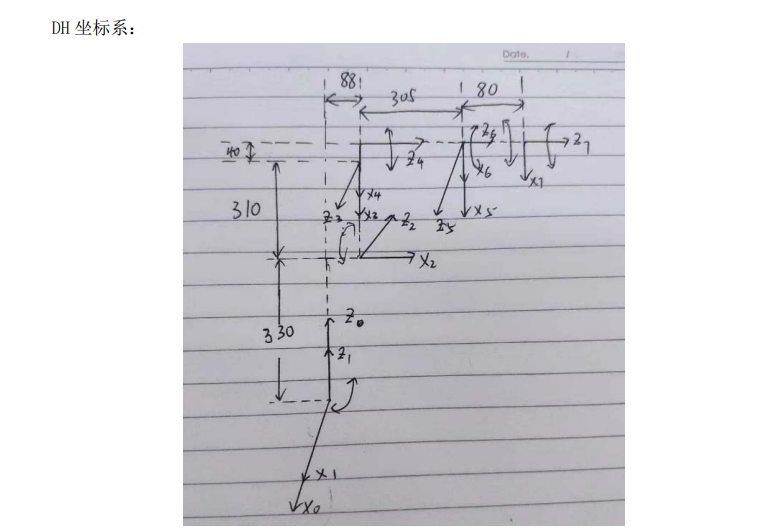 DH 坐标系：
Date. /
88
305
80
40
Z4
Z6
Z7
X6
X7
X4
310
Z3
X3
Z2
Z5
X5
X2
Z0
330
Z1
X1
X0